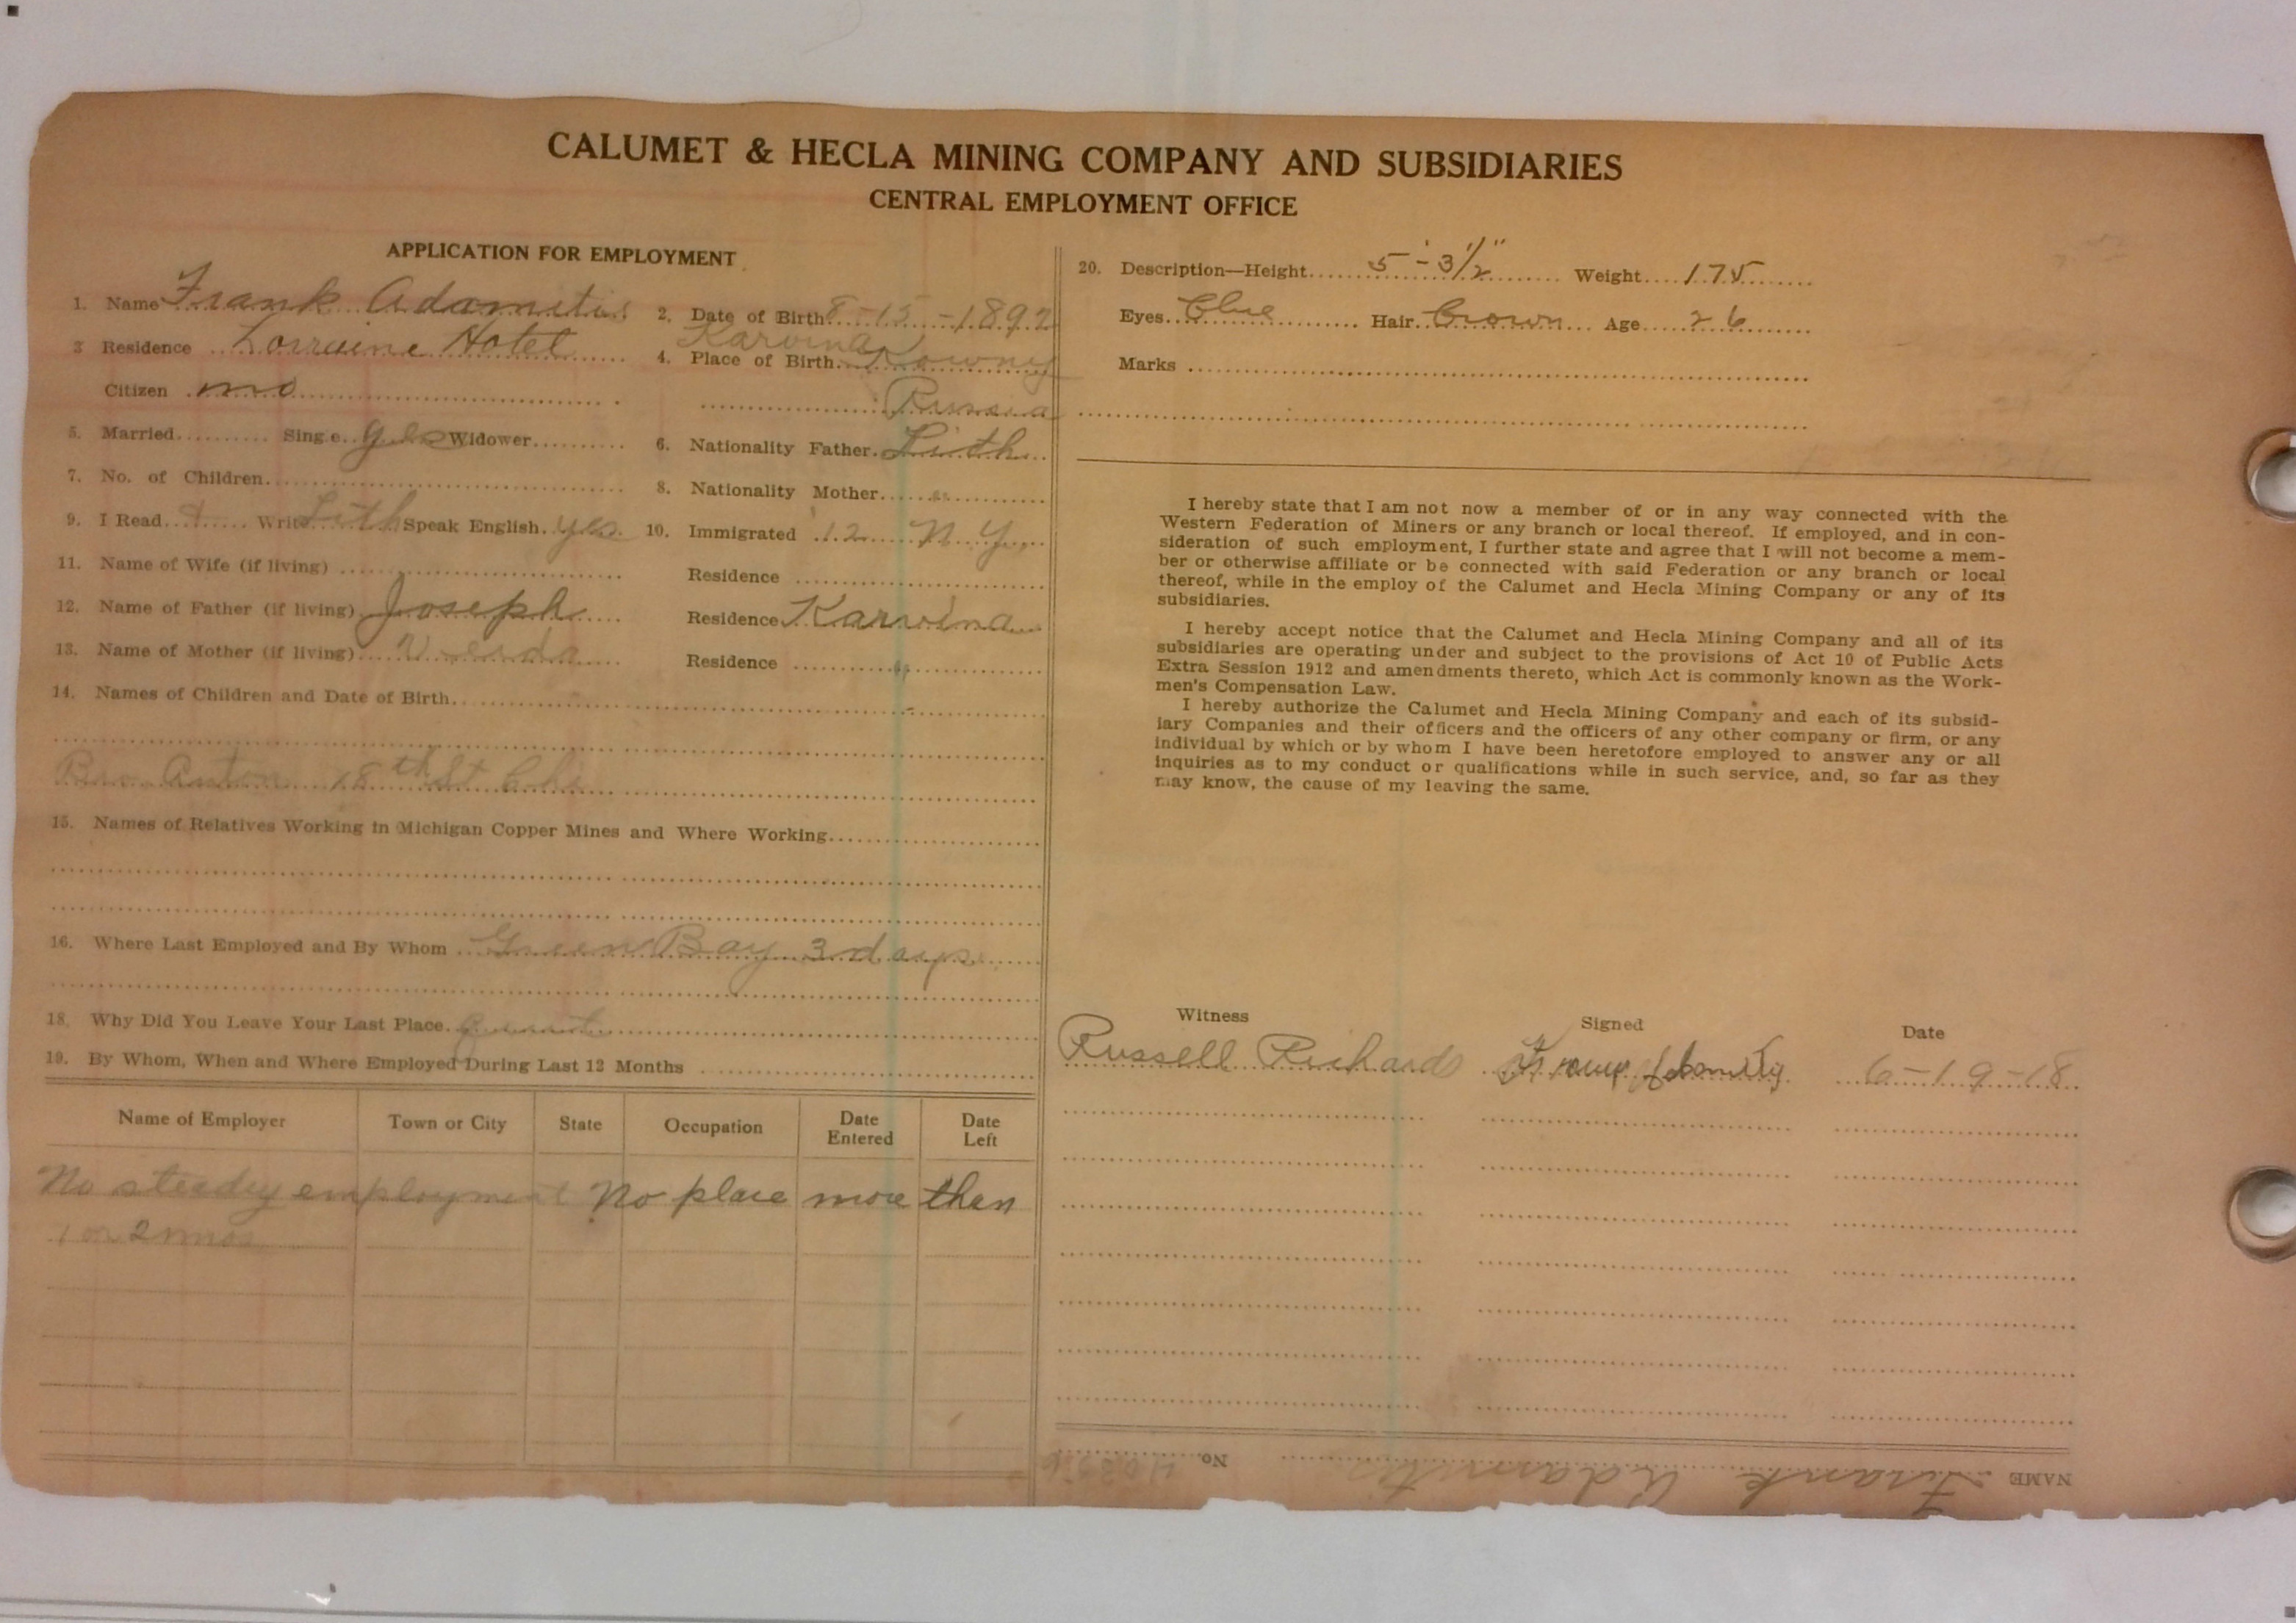 CALUMET & HECLA MINING COMPANY AND SUBSIDIARIES
CENTRAL EMPLOYMENT OFFICE
APPLICATION FOR EMPLOYMENT
1. Name Frank Adametis 2. Date of Birth 8-15-1892
3 Residence Lorraine Hotel 4. Place of Birth Karvina Kowny
Citizen no Russia
5. Married Single yes Widower 6. Nationality Father Lith
7. No. of Children 8. Nationality Mother "
9. I Read + Write Lith Speak English yes 10. Immigrated 12 N.Y.
11. Name of Wife (if living) Residence
12. Name of Father (if living) Joseph Residence Karvina
13. Name of Mother (if living) Residence "
14. Names of Children and Date of Birth
Bro. Anton 18th St Chi
15. Names of Relatives Working in Michigan Copper Mines and Where Working
16. Where Last Employed and By Whom Green Bay 3 days
18. Why Did You Leave Your Last Place
19. By Whom, When and Where Employed During Last 12 Months
Name of Employer Town or City State Occupation Date Entered Date Left
No steady employment No place more than
1 or 2 mos
20. Description—Height 5'-3 1/2" Weight 175
Eyes Blue Hair Brown Age 26
Marks
I hereby state that I am not now a member of or in any way connected with the
Western Federation of Miners or any branch or local thereof. If employed, and in con-
sideration of such employment, I further state and agree that I will not become a mem-
ber or otherwise affiliate or be connected with said Federation or any branch or local
thereof, while in the employ of the Calumet and Hecla Mining Company or any of its
subsidiaries.
I hereby accept notice that the Calumet and Hecla Mining Company and all of its
subsidiaries are operating under and subject to the provisions of Act 10 of Public Acts
Extra Session 1912 and amendments thereto, which Act is commonly known as the Work-
men's Compensation Law.
I hereby authorize the Calumet and Hecla Mining Company and each of its subsid-
iary Companies and their officers and the officers of any other company or firm, or any
individual by which or by whom I have been heretofore employed to answer any or all
inquiries as to my conduct or qualifications while in such service, and, so far as they
may know, the cause of my leaving the same.
Witness Signed Date
Russell Richards 6-19-18
NAME Frank Adametis No.